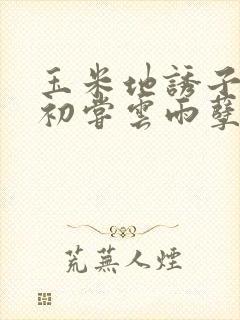 玉米地誘子
初嘗雲雨孽
荒蕪人煙